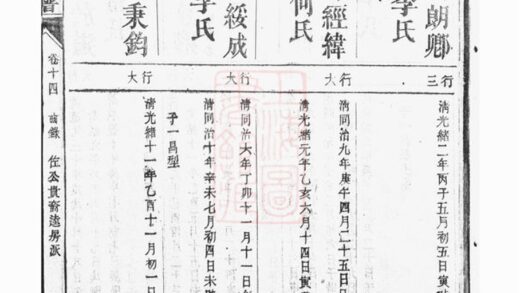 朗卿
李氏
經緯
何氏
綬成
李氏
秉鈞
行三
行大
行大
行大
清光緒二年丙子五月初五日寅時
清同治九年庚午四月二十五日
清光緒元年乙亥六月十四日寅
清同治六年丁卯十一月十一日
清同治十年辛未七月初四日未時
子一昌型
清光緒十一年乙酉十一月初一日
譜
卷十四
齒錄
佐公貴奮逵房派